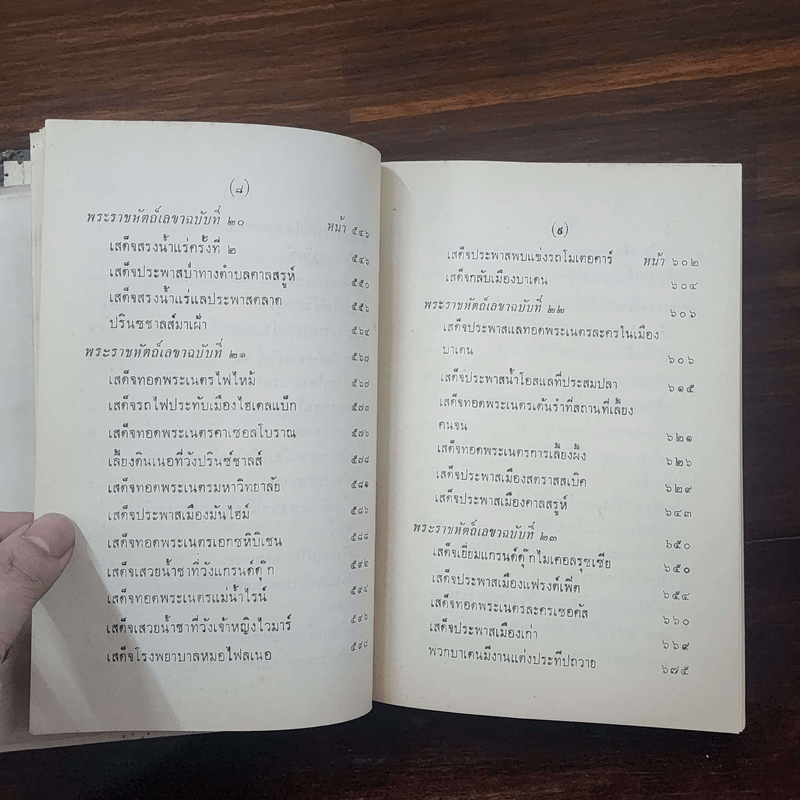 (๘)
หน้า
พระราชหัตถ์เลขาฉบับที่ ๒๐ ๕๔๖
เสด็จสรงน้ำแร่ครั้งที่ ๒ ๕๔๖
เสด็จประพาสป่าทางตำบลคาลสรูห์ ๕๕๐
เสด็จสรงน้ำแร่แลประพาสตลาด ๕๕๖
ปรินซชาลส์มาเฝ้า ๕๖๔
พระราชหัตถ์เลขาฉบับที่ ๒๑ ๕๖๗
เสด็จทอดพระเนตรไฟไหม้ ๕๖๗
เสด็จรถไฟประทับเมืองไฮเดลแบ็ก ๕๗๓
เสด็จทอดพระเนตรคาเซอลโบราณ ๕๗๖
เลี้ยงดินเนอที่วังปรินซ์ชาลส์ ๕๗๘
เสด็จทอดพระเนตรมหาวิทยาลัย ๕๘๑
เสด็จประพาสเมืองมันไฮม์ ๕๘๖
เสด็จทอดพระเนตรเอกซหิบิเชน ๕๘๘
เสด็จเสวยน้ำชาที่วังแกรนด์ดุ๊ก ๕๙๒
เสด็จทอดพระเนตรแม่น้ำไรน์ ๕๙๔
เสด็จเสวยน้ำชาที่วังเจ้าหญิงไวมาร์ ๕๙๖
เสด็จโรงพยาบาลหมอไฟลเนอ ๕๙๘
(๙)
หน้า
เสด็จประพาสพบแข่งรถโมเตอคาร์ ๖๐๒
เสด็จกลับเมืองบาเดน ๖๐๔
พระราชหัตถ์เลขาฉบับที่ ๒๒ ๖๐๖
เสด็จประพาสแลทอดพระเนตรละครในเมือง
บาเดน ๖๐๖
เสด็จประพาสน้ำโอสแลที่ประสมปลา ๖๑๕
เสด็จทอดพระเนตรเต้นรำที่สถานที่เลี้ยง
คนจน ๖๒๑
เสด็จทอดพระเนตรการเลี้ยงผึ้ง ๖๒๖
เสด็จประพาสเมืองสตราสสเบิค ๖๒๙
เสด็จประพาสเมืองคาลสรูห์ ๖๔๓
พระราชหัตถ์เลขาฉบับที่ ๒๓ ๖๕๐
เสด็จเยี่ยมแกรนด์ดุ๊กไมเคอลรุซเซีย ๖๕๐
เสด็จประพาสเมืองแฟรงต์เฟิต ๖๕๔
เสด็จทอดพระเนตรละครเซอคัส ๖๖๐
เสด็จประพาสเมืองเก่า ๖๖๙
พวกบาเดนมีงานแต่งประทีปถวาย ๖๗๕